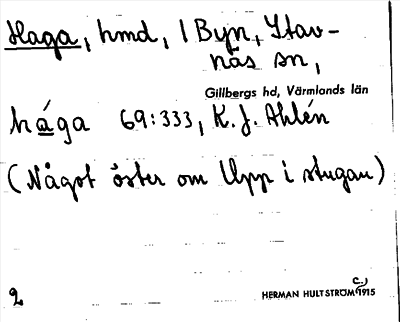 Haga, hmd, 1 Byn, Stav-
näs sn,
Gillbergs hd, Värmlands län
hága 69:333, K. J. Ahlén
(Något öster om Upp i stugan)
2
HERMAN HULTSTRÖM c. 1915